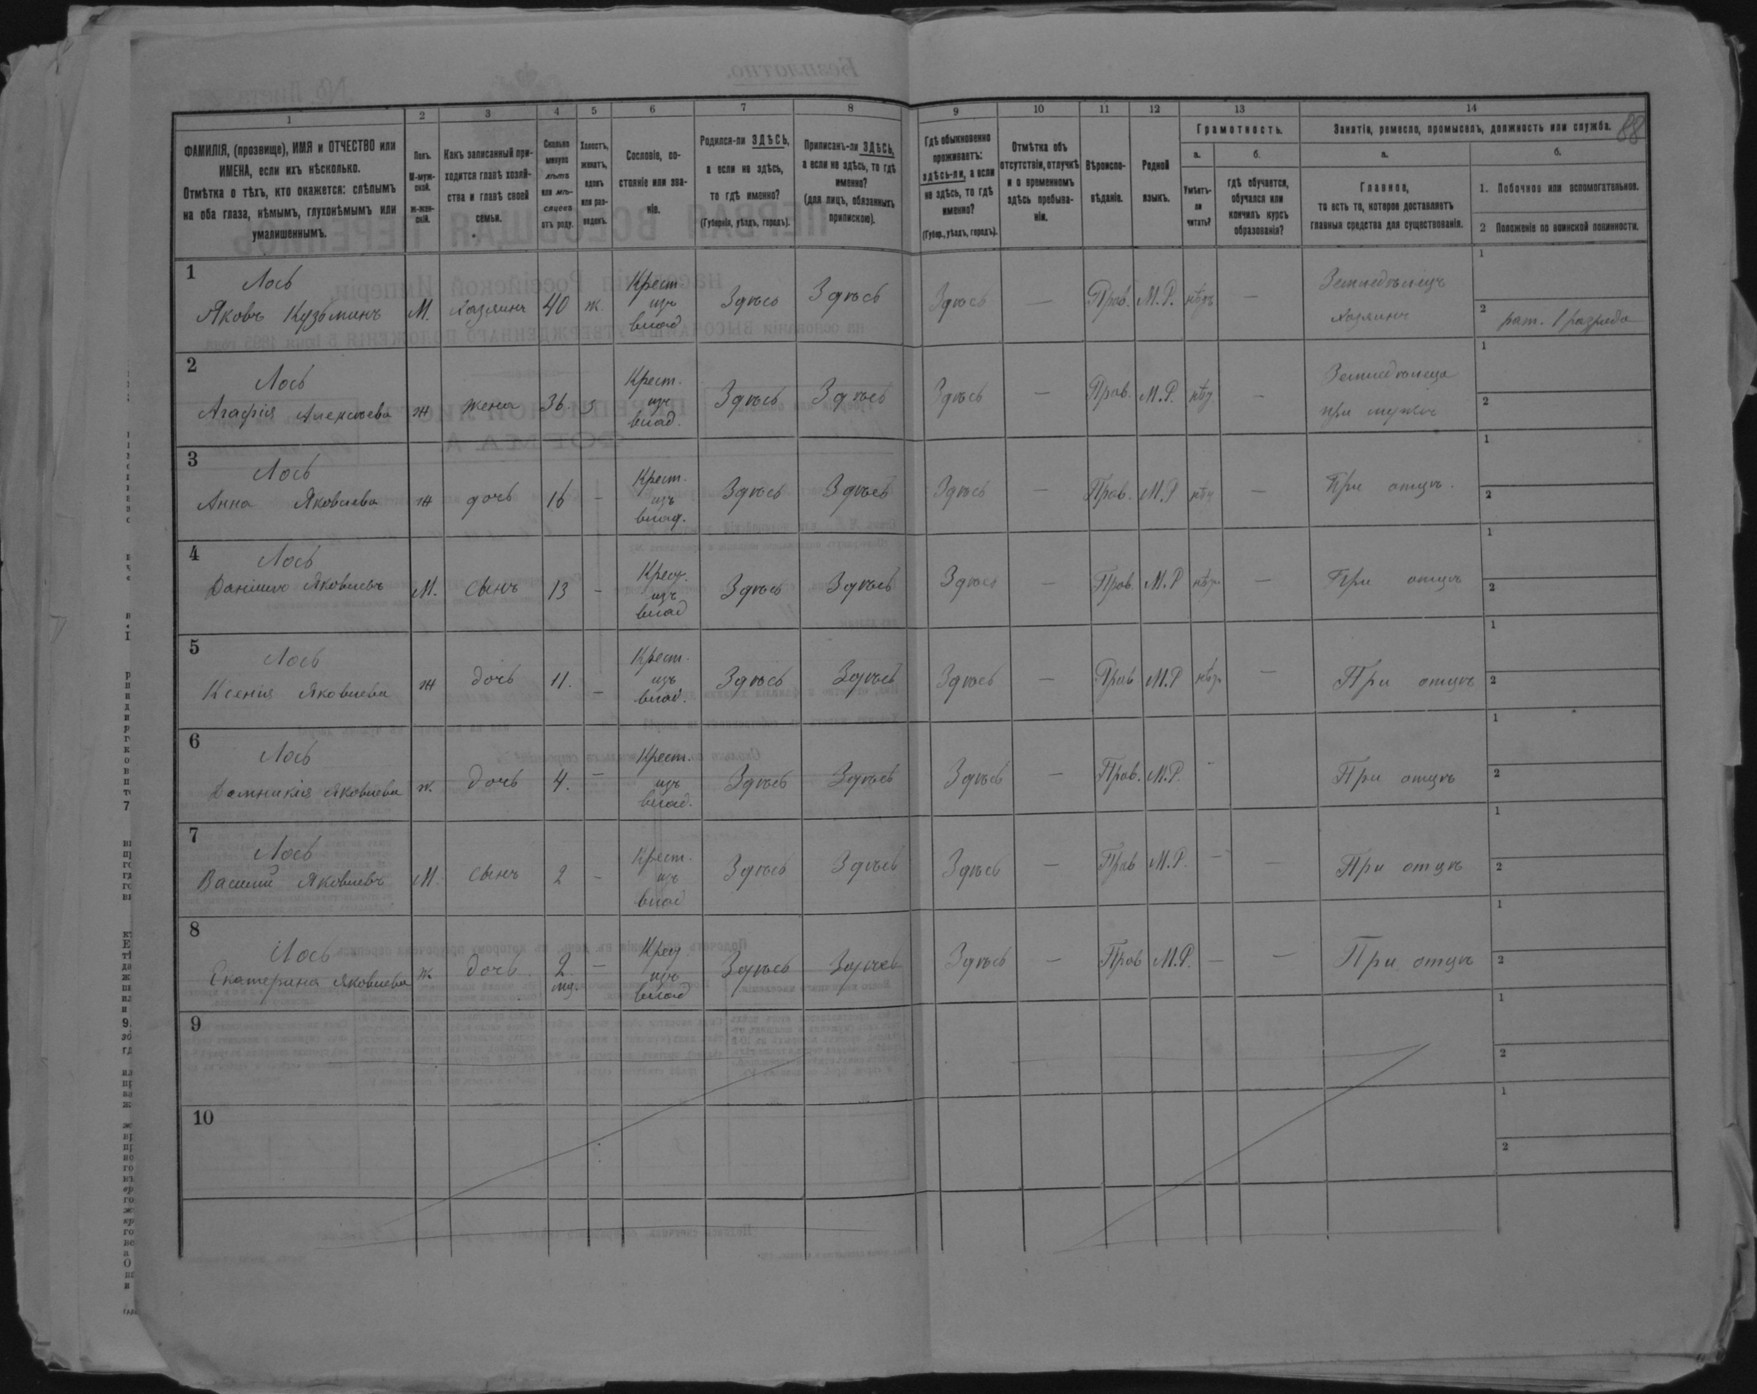 88
1 2 3 4 5 6 7 8 9 10 11 12 13 14
ФАМИЛІЯ, (прозвище), ИМЯ и ОТЧЕСТВО или ИМЕНА, если ихъ нѣсколько.
Отмѣтка о тѣхъ, кто окажется: слѣпымъ на оба глаза, нѣмымъ, глухонѣмымъ или умалишеннымъ.
Полъ.
М-муж-
ской.
ж-жен-
скій.
Какъ записанный при-
ходится главѣ хозяй-
ства и главѣ своей
семьи.
Сколько
минуло
лѣтъ
или мѣ-
сяцевъ
отъ роду.
Холостъ,
женатъ,
вдовъ
или раз-
веденъ.
Сословіе, со-
стояніе или зва-
ніе.
Родился-ли ЗДѢСЬ,
а если не здѣсь,
то гдѣ именно?
(Губернія, уѣздъ, городъ).
Приписанъ-ли ЗДѢСЬ,
а если не здѣсь, то гдѣ
именно?
(для лицъ, обязанныхъ
припискою).
Гдѣ обыкновенно
проживаетъ:
здѣсь-ли, а если
не здѣсь, то гдѣ
именно?
(Губер., уѣздъ, городъ).
Отмѣтка объ
отсутствіи, отлучкѣ
и о временномъ
здѣсь пребыва-
ніи.
Вѣроиспо-
вѣданіе.
Родной
языкъ.
Грамотность.
а.
Умѣетъ-
ли
читать?
б.
гдѣ обучается,
обучался или
кончилъ курсъ
образованія?
Занятіе, ремесло, промыселъ, должность или служба.
а.
Главное,
то есть то, которое доставляетъ
главныя средства для существованія.
б.
1. Побочное или вспомогательное.
2 Положеніе по воинской повинности.
1 Лось
Яковъ Кузьминъ М. хозяинъ 40 ж. Крест изъ влад Здѣсь Здѣсь Здѣсь — Прав. М.Р. нѣтъ — Земледѣлецъ хозяинъ 1
2 рат. 1 разряда
2 Лось
Агафія Алексѣева ж жена 36 з Крест. изъ влад. Здѣсь Здѣсь Здѣсь — Прав. М.Р. нѣт — Земледѣлица при мужѣ 1
2
3 Лось
Анна Яковлева ж дочь 16 — Крест. изъ влад. Здѣсь Здѣсь Здѣсь — Прав. М.Р нѣт — При отцѣ. 1
2
4 Лось
Даніилъ Яковлевъ М. сынъ 13 — Крест. изъ влад Здѣсь Здѣсь Здѣсь — Прав. М.Р нѣт. — При отцѣ 1
2
5 Лось
Ксенія Яковлева ж дочь 11. — Крест. изъ влад. Здѣсь Здѣсь Здѣсь — Прав М.Р нѣт. — При отцѣ 1
2
6 Лось
Домникія Яковлева ж. дочь 4. — Крест. изъ влад. Здѣсь Здѣсь Здѣсь — Прав. М.Р. — При отцѣ 1
2
7 Лось
Василій Яковлевъ М. сынъ 2 — Крест. изъ влад Здѣсь Здѣсь Здѣсь — Прав М.Р. — — При отцѣ 1
2
8 Лось
Екатерина Яковлева ж. дочь 2 мц. — Крест изъ влад Здѣсь Здѣсь Здѣсь — Прав М.Р. — — При отцѣ 1
2
9 1
2
10 1
2